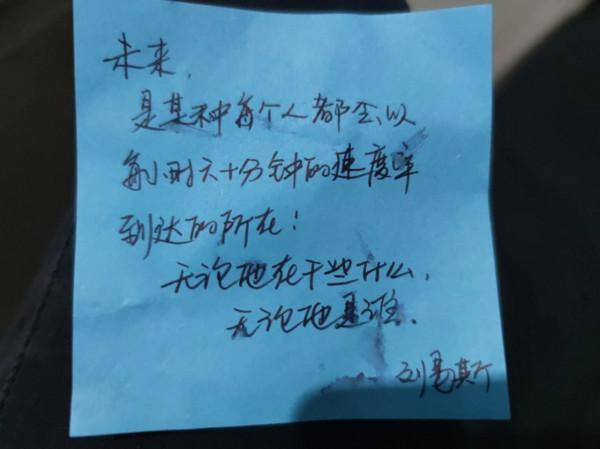 未来,
是某种每个人都会以
每小时六十分钟的速度率
到达的所在!
无论他在干些什么,
无论他是谁.
刘易斯